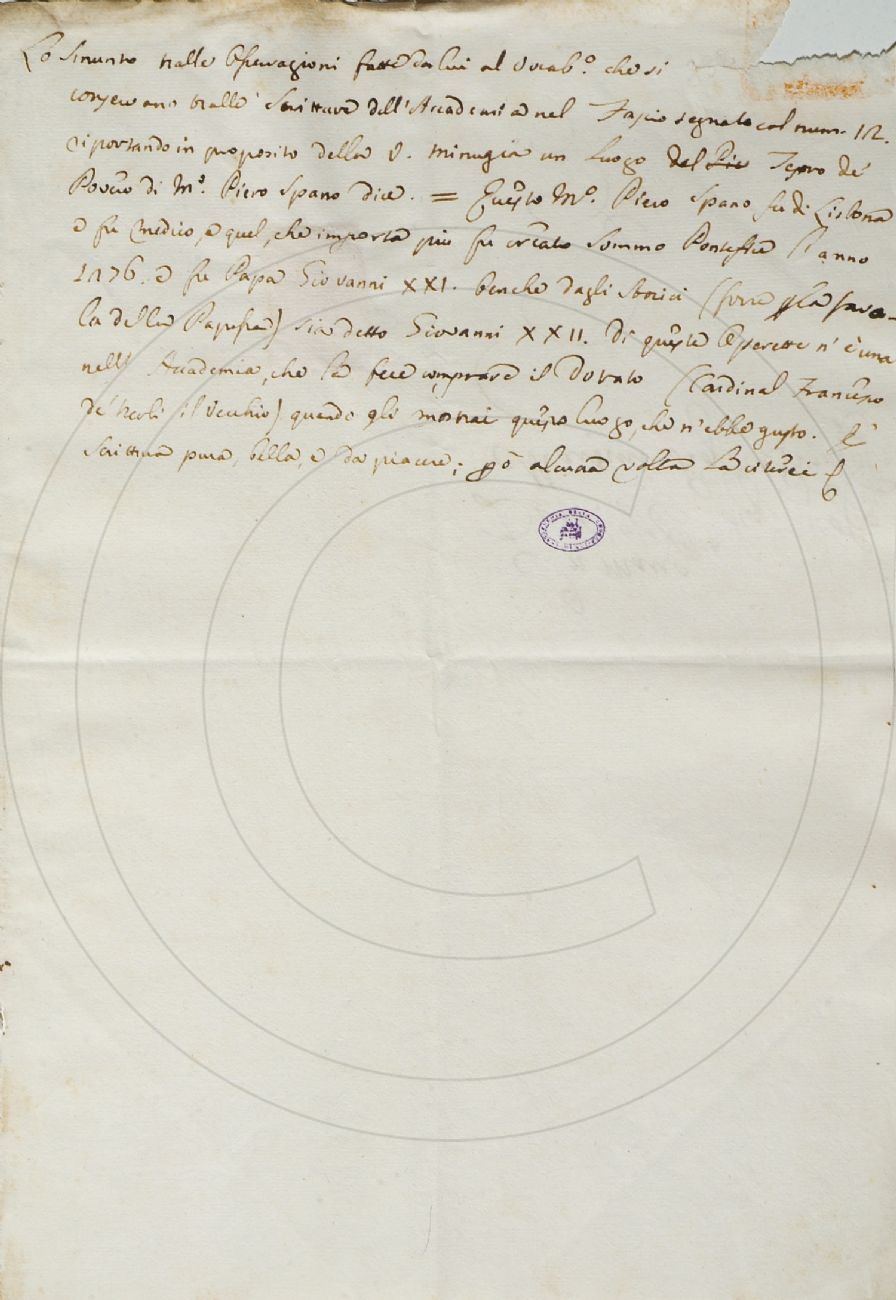 Lo Smunto nelle Osservazioni fatte da lui al Vocab.º che si
conservano tralle Scritture dell'Accademia nel Fascio segnato col num. 12.
riportando in proposito della V. Minugia un luogo del Tesoro de'
Poveri di M.º Piero Spano dice. = Questo M.º Piero Spano fu di Lisbona
e fu Medico, e quel, che importa più fu creato Sommo Pontefice l'anno
1276. e fu Papa Giovanni XXI. benche dagli Storici (forse p la favo-
la della Papessa) sia detto Giovanni XXII. Di queste Operette n'è una
nell' Accademia, che la fece comprare il Dotato (Cardinal Francesco
de' Nerli il Vecchio) quando gli mostrai questo luogo, che n'ebbe gusto. E'
Scrittura pura, bella, e da piacere; però alcuna volta la citerei